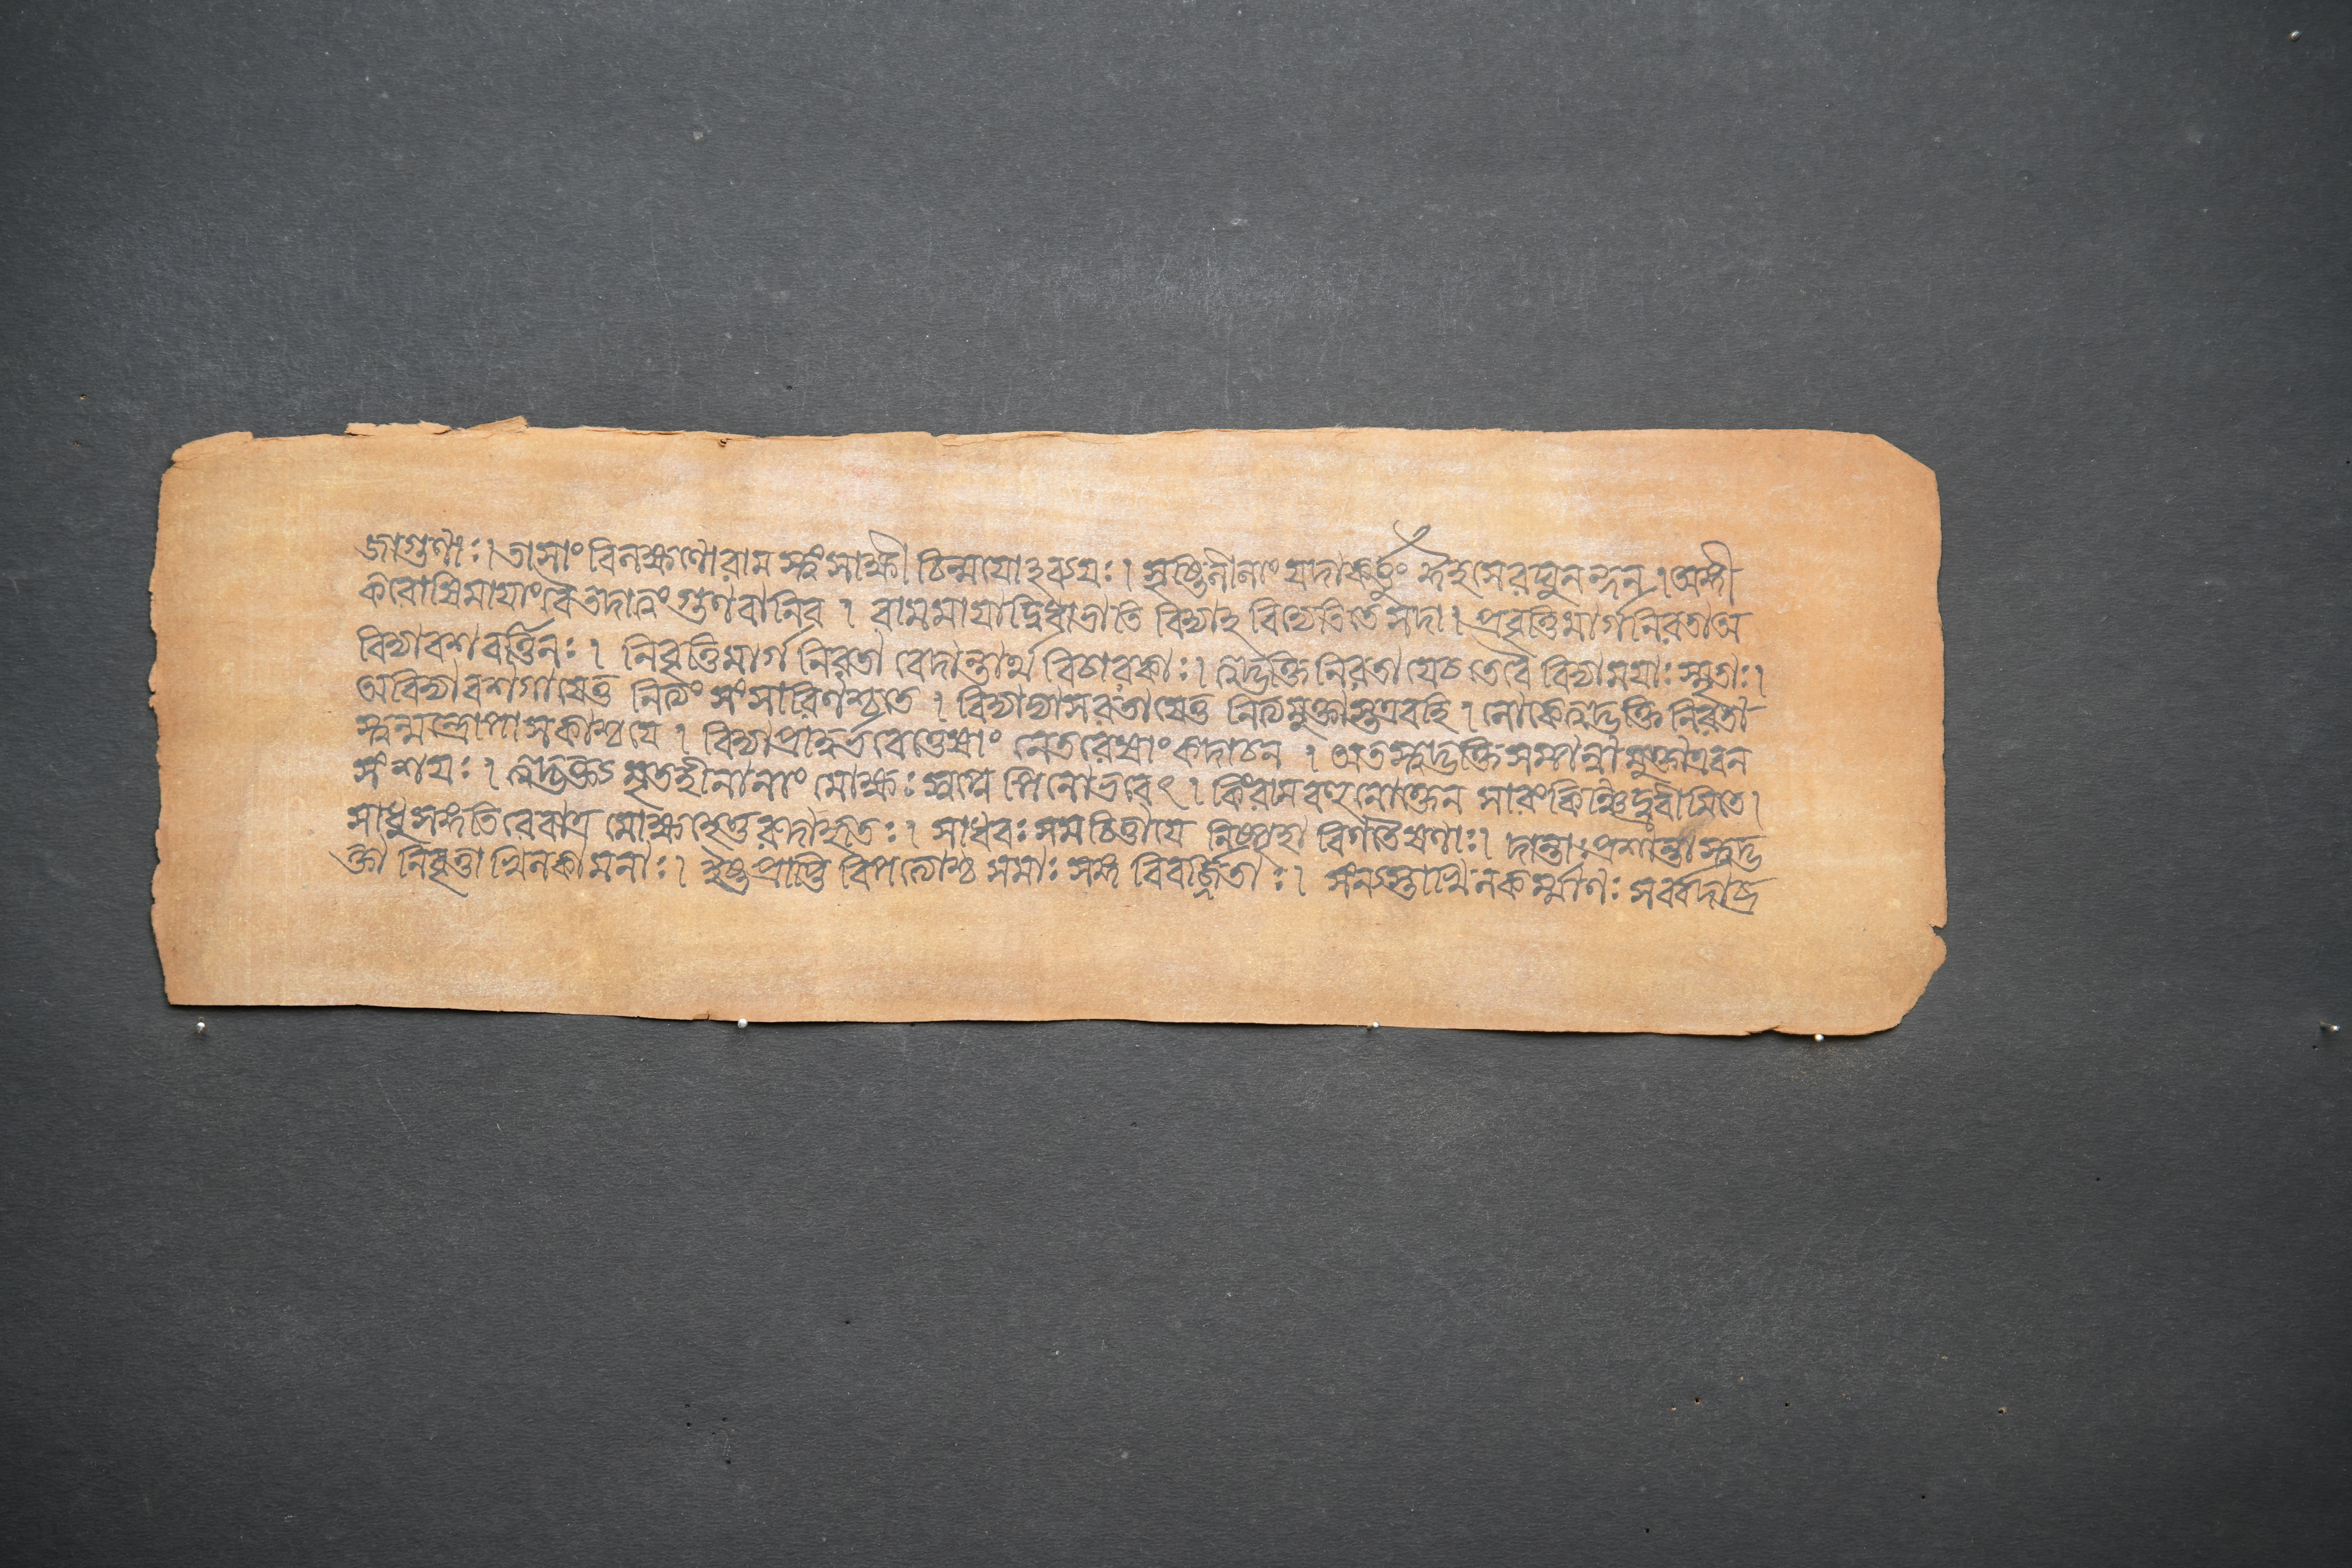 জাগুণাঃ। তাসাং বিলক্ষণোরাম ত্বংসাক্ষী চিন্ময়োঽব্যয়ঃ। সৃষ্টিলীলাং যদাকর্ত্তুং মীহসেরঘুনন্দন। অঙ্গী
করোষিমায়াংত্বৈতদালং গুণবানিব। রামমায়াদ্বিধাভাতি বিদ্যাঽবিদ্যেতিতেসদা। প্রবৃত্তিমার্গনিরতাঅ
বিদ্যাবশবর্ত্তিনঃ। নিবৃত্তিমার্গনিরতা বেদান্তার্থবিচারকাঃ। ত্বদ্ভক্তিনিরতা যেচ তেবৈ বিদ্যাময়াঃস্মৃতাঃ।
অবিদ্যাবশগাযেতু নিত্যং সংসারিণশ্চতে। বিদ্যাভ্যাসরতাযেতু নিত্যমুক্তাস্তএবহি। লোকেত্বদ্ভক্তিনিরতা
স্ত্বন্মন্ত্রোপাসকাশ্চযে। বিদ্যাপ্রাদুর্ভবেত্তেষাং নেতরেষাংকদাচন। অতস্ত্বদ্ভক্তিসম্পন্নামুক্তাএবন
সংশয়ঃ। ত্বদ্ভক্ত্যঽমৃতহীনানাং মোক্ষঃ স্বপ্নেপিনোভবেৎ। কিংরামবহুনোক্তেন সারংকিঞ্চিদ্ব্রবীমিতে।
সাধুসঙ্গতিরেবাত্র মোক্ষহেতুরুদাহৃতঃ। সাধবঃসমচিত্তাযে নিষ্পৃহা বিগতৈষণাঃ। দান্তাঃপ্রশান্তাস্ত্বদ্ভ
ক্তা নিবৃত্তাখিলকামনাঃ। ইষ্টপ্রাপ্তি বিপত্যোশ্চসমাঃসঙ্গবিবর্জ্জিতাঃ। সংন্যস্তাখিলকর্ম্মাণঃ সর্ব্বদাব্র